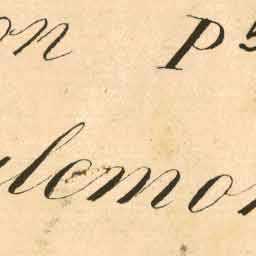 on Ps
lemon